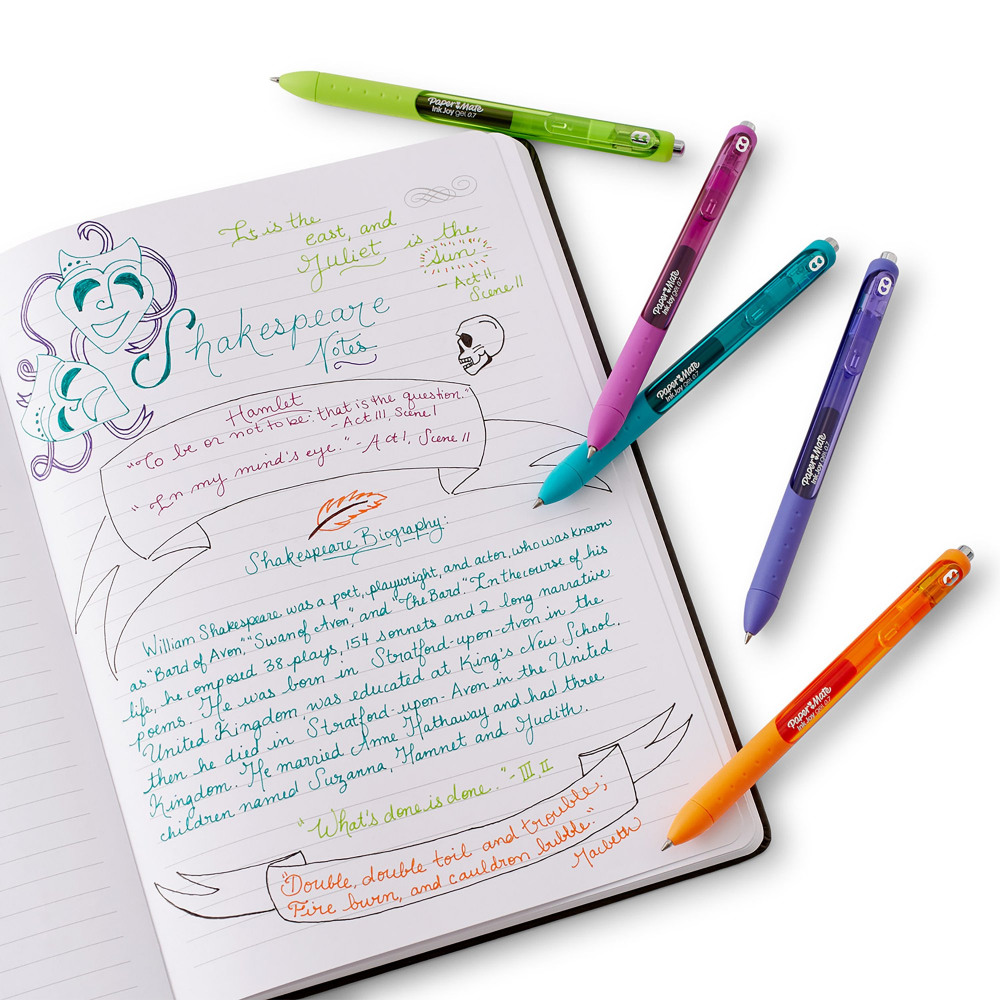 It is the
east, and
Juliet is the
sun
- Act II,
Scene II
Shakespeare
Notes
Hamlet
"To be or not to be: that is the question."
- Act III, Scene I
"In my mind's eye." - Act I, Scene II
Shakespeare Biography:
William Shakespeare was a poet, playwright, and actor, who was known
as "Bard of Avon", "Swan of Avon", and "The Bard." In the course of his
life, he composed 38 plays, 154 sonnets and 2 long narrative
poems. He was born in Stratford-upon-Avon in the
United Kingdom, was educated at King's New School.
then he died in Stratford-upon-Avon in the United
Kingdom. He married Anne Hathaway and had three
children named Suzanna, Hamnet and Judith.
"What's done is done." - III, II
"Double, double toil and trouble;
Fire burn, and cauldron bubble."
Macbeth
Paper Mate
InkJoy gel 0.7
Paper Mate
InkJoy gel 0.7
Paper Mate
InkJoy gel 0.7
Paper Mate
InkJoy gel 0.7
Paper Mate
InkJoy gel 0.7